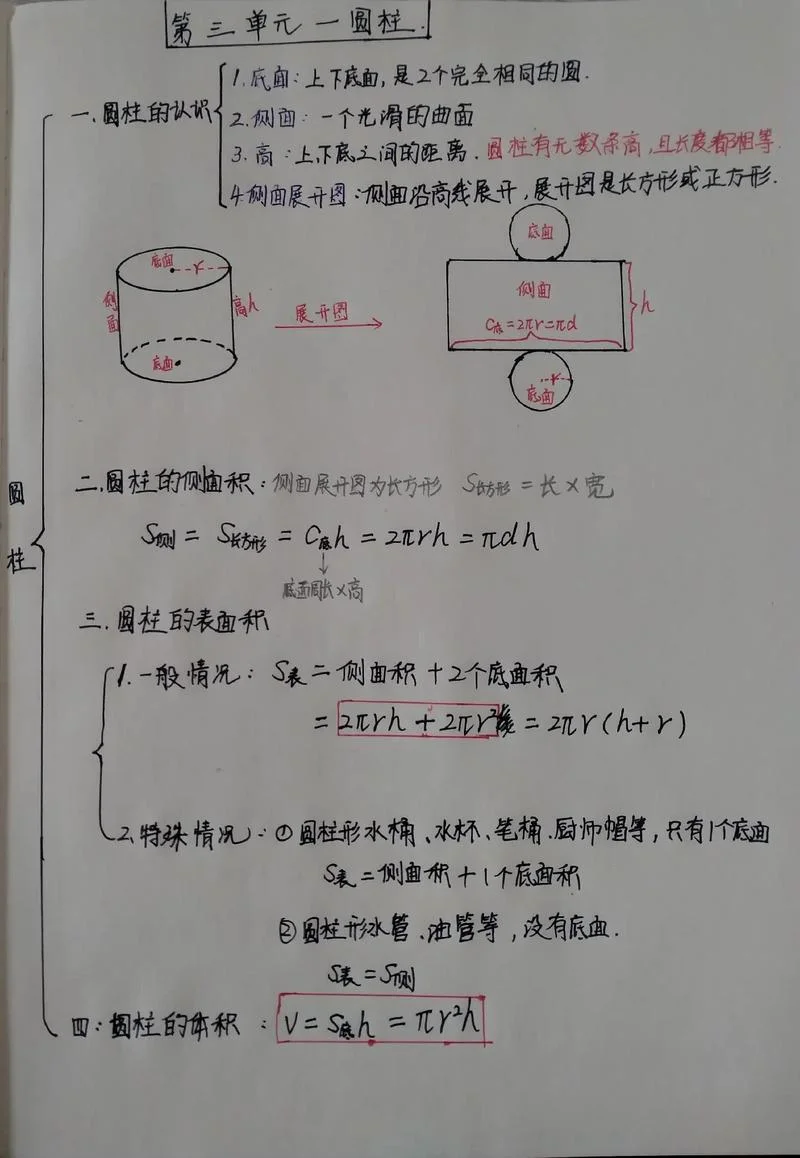 第三单元一圆柱.
一.圆柱的认识
1.底面：上下底面,是2个完全相同的圆.
2.侧面：一个光滑的曲面
3.高：上、下底之间的距离.圆柱有无数条高,且长度都相等.
4.侧面展开图：侧面沿高线展开,展开图是长方形或正方形.
底面
r
侧面
高h
底面
展开图
底面
侧面
C底=2πr=πd
h
r
底面
圆柱
二.圆柱的侧面积：侧面展开图为长方形 S长方形=长×宽
S侧=S长方形=C底h=2πrh=πdh
底面周长×高
三.圆柱的表面积
1.一般情况：S表=侧面积+2个底面积
=2πrh+2πr²=2πr(h+r)
2.特殊情况：①圆柱形水桶、水杯、笔桶.厨师帽等,只有1个底面
S表=侧面积+1个底面积
②圆柱形水管、油管等,没有底面.
S表=S侧
四：圆柱的体积：V=S底h=πr²h